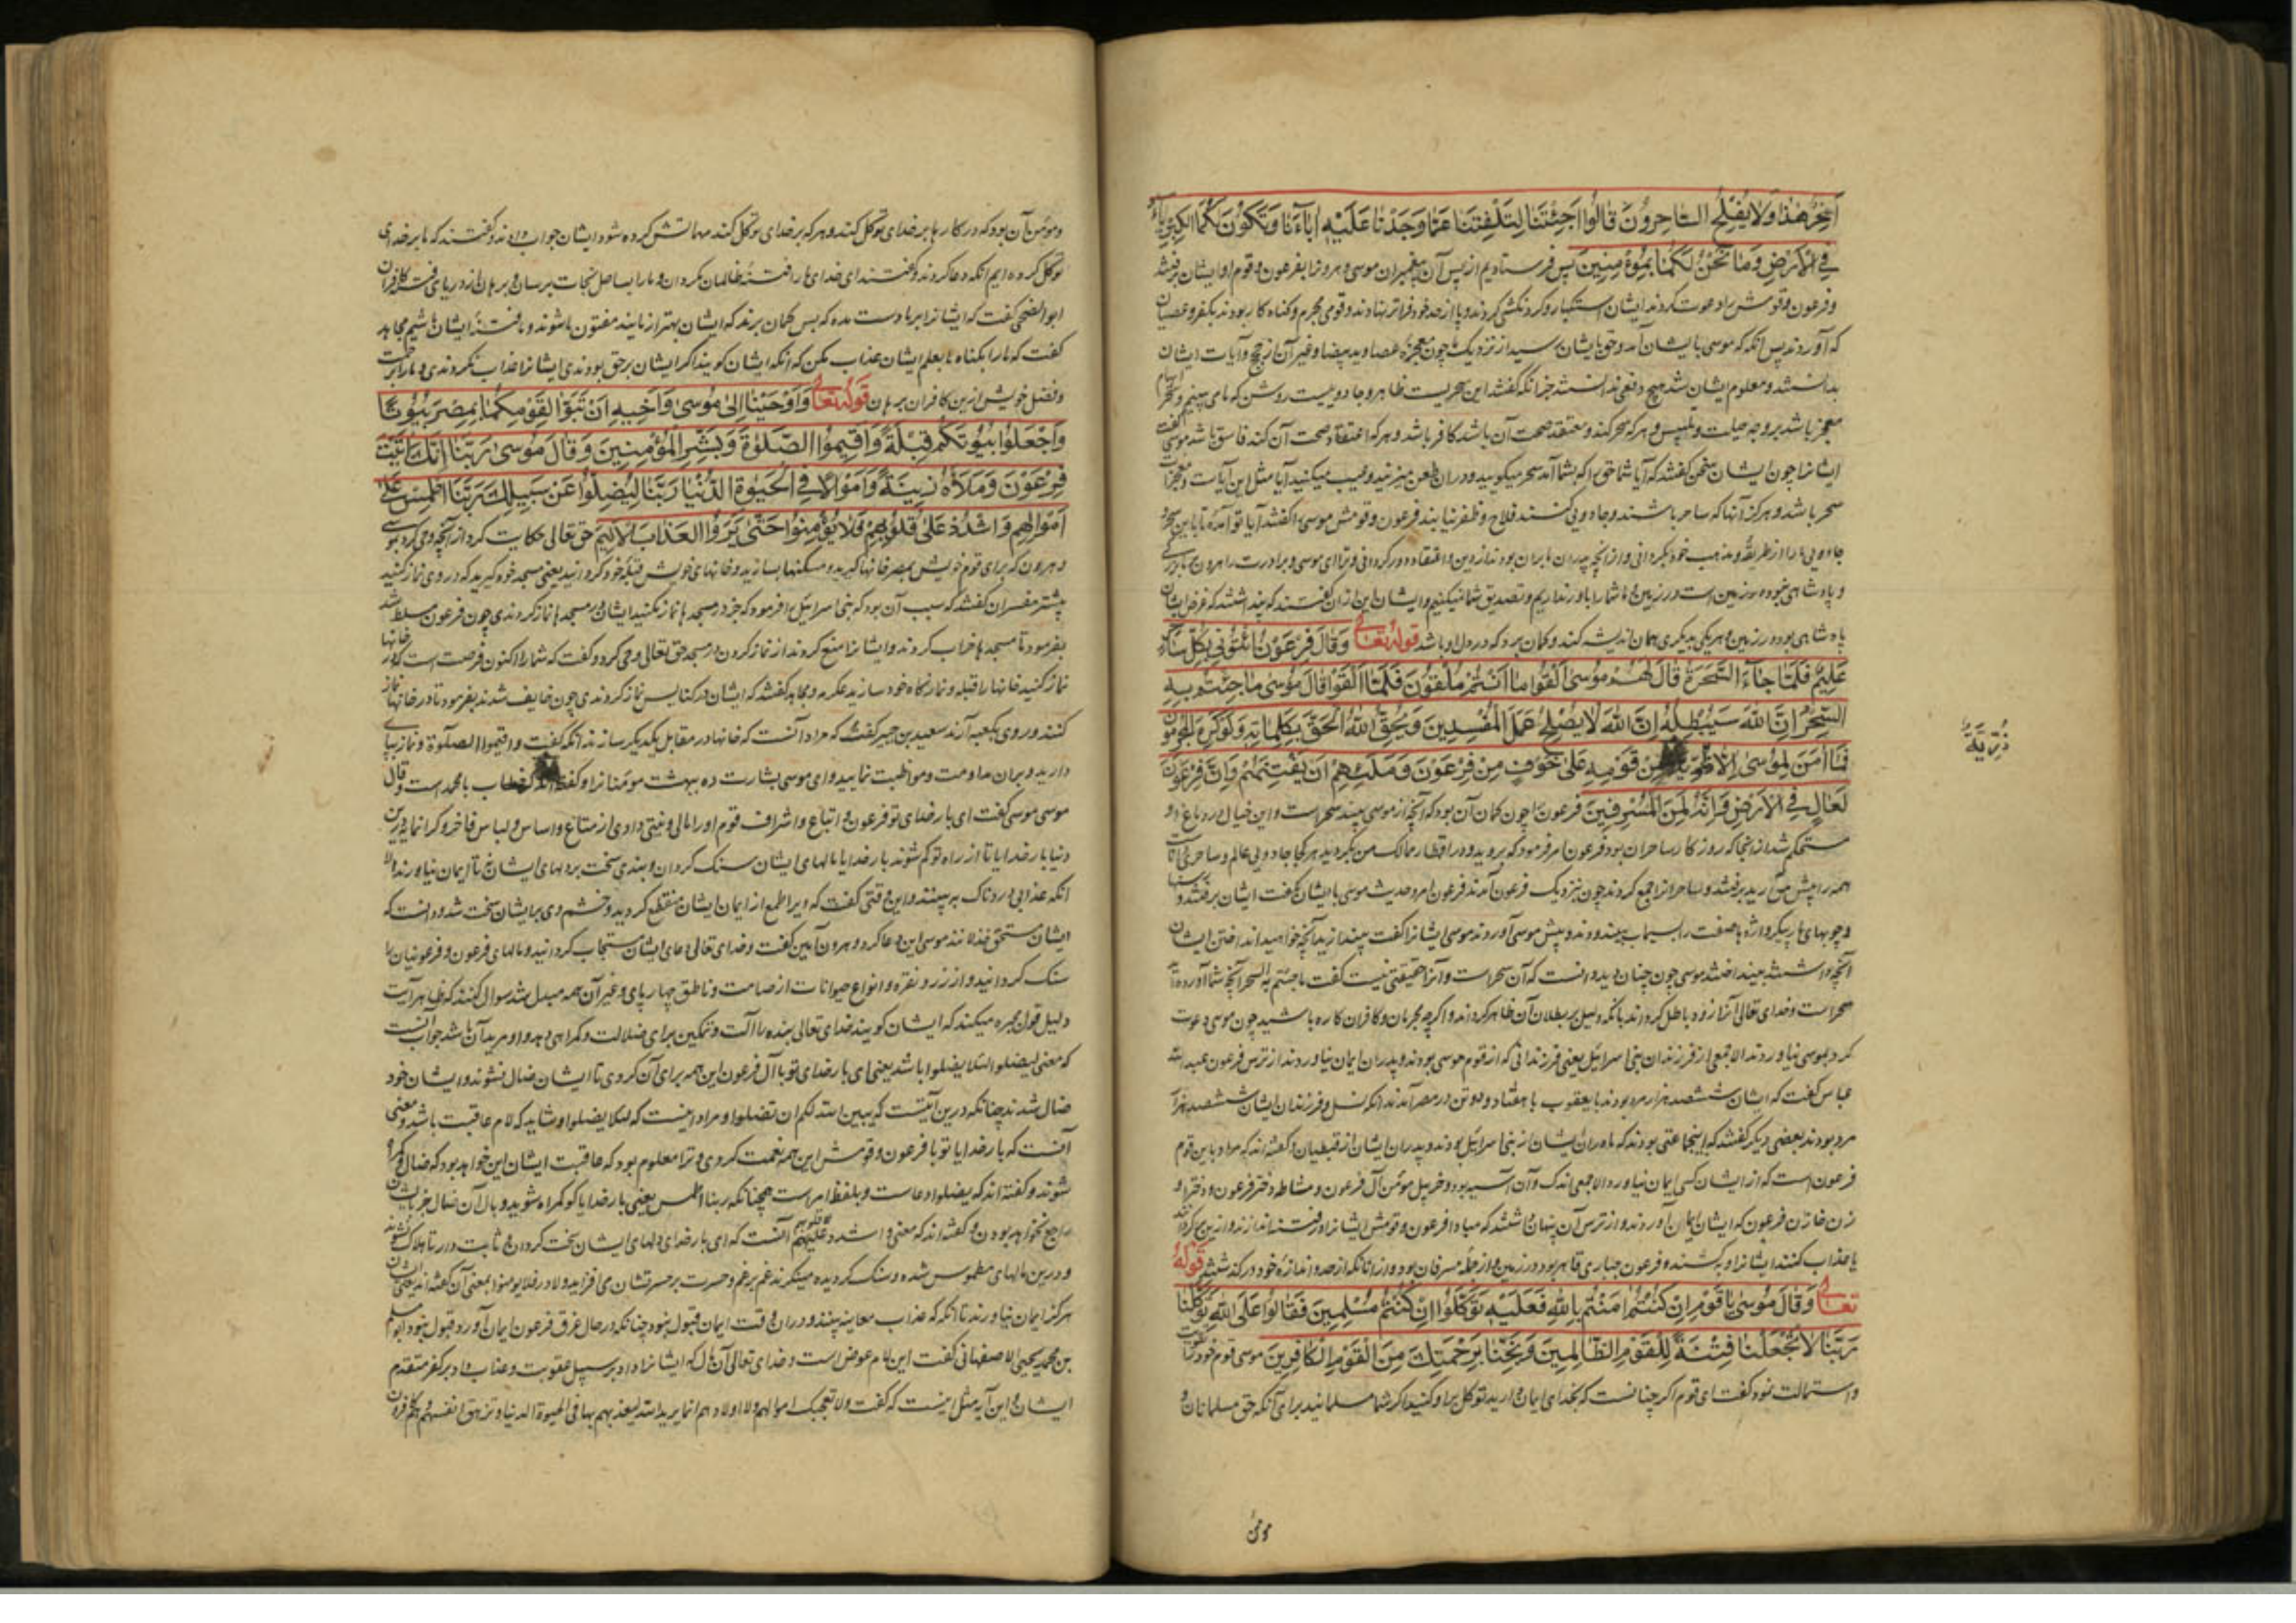 أَسِحْرٌ هٰذَا وَلَا يُفْلِحُ السَّاحِرُونَ قَالُوا أَجِئْتَنَا لِتَلْفِتَنَا عَمَّا وَجَدْنَا عَلَيْهِ اٰبَاءَنَا وَتَكُونَ لَكُمَا الْكِبْرِيَاءُ
فِي الْأَرْضِ وَمَا نَحْنُ لَكُمَا بِمُؤْمِنِينَ پس فرستادیم از پس آن پیغمبران موسی و هرونرا بفرعون و قوم او ایشان برفتند
و فرعون و قومش را دعوت کردند ایشان استکبار و کردنکشی کردند و پا از حد خود فراتر نهادند و قومی مجرم و کناه کار بودند بکفر و عصیان
که آوردند پس انکه که موسی بایشان آمد و حق بایشان رسید از نزدیک ما چون معجزه عصا و ید بیضا و غیر آن از حجج و آیات ایشان
بدانستند و معلوم ایشان شد هیچ دفعی ندانستند جز انکه کفتند این سحریست ظاهر و جادوییست روشن که ما می بینیم و سحر
معجز باشد بر وجه حیلت و تلبیس و هر که سحر کند و معتقد صحت آن باشد کافر باشد و هر که اعتقاد صحت آن کند فاسق باشد موسی کفت
ایشانرا چون ایشان سخن کفتند که آیا شما حق را که بشما آمد سحر میکویید و دران طعن میزنید و عیب میکنید آیا مثل این آیات و معجزات
سحر باشد و هرکز آنها که ساحر باشند و جادویی کنند فلاح و ظفر نیابند فرعون و قومش موسی را کفتند آیا تو آمدهٔ تا باین سحر
جادویی ما را از طریقه و مذهب خود بکردانی و از انچه پدران ما بران بودند از دین و اعتقاد دور کردانی و ترا ای موسی و برادرت را هرون
و پادشاهی بود در زمین است و در زمین و ما شما را باور نداریم و تصدیق شما نیکنیم و ایشان این ازان کفتند که پنداشتند که غرض ایشان
پادشاهی بود در زمین و هر یکی بدیکری همان اندیشه کند و کمان برد که در دل او باشد قوله تعالی وَقَالَ فِرْعَوْنُ ائْتُونِي بِكُلِّ سَاحِرٍ
عَلِيمٍ فَلَمَّا جَاءَ السَّحَرَةُ قَالَ لَهُمْ مُوسٰى أَلْقُوا مَا أَنْتُمْ مُلْقُونَ فَلَمَّا أَلْقَوْا قَالَ مُوسٰى مَا جِئْتُمْ بِهِ
السِّحْرُ إِنَّ اللّٰهَ سَيُبْطِلُهُ إِنَّ اللّٰهَ لَا يُصْلِحُ عَمَلَ الْمُفْسِدِينَ وَيُحِقُّ اللّٰهُ الْحَقَّ بِكَلِمَاتِهِ وَلَوْ كَرِهَ الْمُجْرِمُونَ
فَمَا اٰمَنَ لِمُوسٰى إِلَّا مِنْ قَوْمِهِ عَلٰى خَوْفٍ مِنْ فِرْعَوْنَ وَمَلَئِهِمْ أَنْ يَفْتِنَهُمْ وَإِنَّ فِرْعَوْنَ
ذُرِّيَّةٌ
لَعَالٍ فِي الْأَرْضِ وَإِنَّهُ لَمِنَ الْمُسْرِفِينَ فرعون را چون کمان آن بود که آنچه از موسی بیند سحر است و این خیال در دماغ او
مستحکم شد از انجا که روز کار ساحران بود فرعون امر فرمود که بروید و در اقطار ممالک من بکردید هر کجا جادویی عالم و ساحری
همه را پیش من آرید برفتند و ساحرانرا جمع کردند چون نزدیک فرعون آمدند فرعون امر و حدیث موسی با ایشان بکفت ایشان برفتند و
و چوبهای مار پیکر و اژدها صفت را بسیماب بیندودند و پیش موسی آوردند موسی ایشانرا کفت بیندازید آنچه خواهید انداختن ایشان
آنچه داشتند بینداختند موسی چون چنان دید و دانست که آن سحر است و آنرا حقیقتی نیست کفت ما جئتم به السحر آنچه شما آورده اید
سحر است و خدای تعالی آنرا زود باطل کرداند بانکه دلیل بر بطلان آن ظاهر کرداند و اکرچه مجرمان و کافران کاره باشید چون موسی دعوت
کرد بموسی نیاوردند الا جمعی از فرزندان بنی اسرائیل یعنی فرزندانی که از قوم موسی بودند و پدران ایمان نیاوردند از ترس فرعون عبد الله
عباس کفت که ایشان ششصد هزار مرد بودند با یعقوب با هفتاد و دو تن در مصر آمدند انکه نسل و فرزندان ایشان ششصد هزار
مرد بودند بعضی دیکر کفتند که اینجماعتی بودند که مادران ایشان از بنی اسرائیل بودند و پدران ایشان از قبطیان و کفته اند که مراد باین قوم
فرعون است که از ایشان کسی ایمان نیاورد الا جمعی اندک و آن آسیه بود و خربیل مؤمن آل فرعون و مشاطه دختر فرعون و دختر او
زن خازن فرعون که ایشان ایمان آوردند و از ترس آن پنهان داشتند که مبادا فرعون و قومش ایشانرا در فتنه اندازند و از دین برکردانند
یا عذاب کنند ایشانرا و بکشند و فرعون جباری قاهر بود در زمین و از جمله مسرفان بود و از انانکه از حد و اندازه خود در کذشتند قوله
تعالی وَقَالَ مُوسٰى يَا قَوْمِ إِنْ كُنْتُمْ اٰمَنْتُمْ بِاللّٰهِ فَعَلَيْهِ تَوَكَّلُوا إِنْ كُنْتُمْ مُسْلِمِينَ فَقَالُوا عَلَى اللّٰهِ تَوَكَّلْنَا
رَبَّنَا لَا تَجْعَلْنَا فِتْنَةً لِلْقَوْمِ الظَّالِمِينَ وَنَجِّنَا بِرَحْمَتِكَ مِنَ الْقَوْمِ الْكَافِرِينَ موسی قوم خود را
و استمالت نمود کفت ای قوم اکر چنانست که بخدای ایمان دارید توکل برو کنید اکر شما مسلمانید برای آنکه حق مسلمانان
و مؤمن آن بود که در کارها بر خدای توکل کنند و هر که بر خدای توکل کند مهماتش کرده شود ایشان جواب دادند و کفتند که ما بر خدای
توکل کرده ایم انکه دعا کردند و کفتند ای خدای ما را فتنهٔ ظالمان مکردان و ما را بساحل نجات برسان و برهان از دریای کافران
ابو الضحی کفت که ایشانرا بر ما دست مده که پس کمان برند که ایشان بهتر از مایند مفتون شوند و ما فتنهٔ ایشان باشیم مجاهد
کفت که ما را بکناه ما بعلم ایشان عذاب مکن که انکه ایشان کویند اکر ایشان بر حق بودندی ایشانرا عذاب نکردندی و ما را برحمت
و فضل خویش ازین کافران برهان قوله تعالی وَأَوْحَيْنَا إِلٰى مُوسٰى وَأَخِيهِ أَنْ تَبَوَّا لِقَوْمِكُمَا بِمِصْرَ بُيُوتًا
وَاجْعَلُوا بُيُوتَكُمْ قِبْلَةً وَأَقِيمُوا الصَّلٰوةَ وَبَشِّرِ الْمُؤْمِنِينَ وَقَالَ مُوسٰى رَبَّنَا إِنَّكَ اٰتَيْتَ
فِرْعَوْنَ وَمَلَأَهُ زِينَةً وَأَمْوَالًا فِي الْحَيٰوةِ الدُّنْيَا رَبَّنَا لِيُضِلُّوا عَنْ سَبِيلِكَ رَبَّنَا اطْمِسْ عَلٰى
أَمْوَالِهِمْ وَاشْدُدْ عَلٰى قُلُوبِهِمْ فَلَا يُؤْمِنُوا حَتّٰى يَرَوُا الْعَذَابَ الْأَلِيمَ حق تعالی حکایت کرد از آنچه وحی کرد بموسی
و هرون که برای قوم خویش بمصر خانها کیرید و مسکنها بسازید و خانهای خویش قبلهٔ خود کردانید یعنی مسجد خود کیرید که در وی نماز کنید
بیشتر مفسران کفتند که سبب آن بود که بنی اسرائیل را فرمود که جز در مسجدها نماز مکنید ایشان در مسجدها نماز کردندی چون فرعون مسلط شد
بفرمود تا مسجدها خراب کردند و ایشانرا منع کردند از نماز کردن در مسجد حق تعالی وحی کرد و کفت که شما را اکنون فرصت است که در خانها
نماز کنید خانها را قبله و نمازکاه خود سازید عکرمه و مجاهد کفتند که ایشان در کنایس نماز کردندی چون خایف شدند بفرمود تا در خانها نماز
کنند و روی بکعبه آرند سعید بن جبیر کفت که مراد آنست که خانها در مقابل یکدیکر سازند انکه کفت و اقیموا الصلوة و نماز بپای
دارید و بران مداومت و مواظبت نمایید و ای موسی بشارت ده ببهشت مومنانرا و کفتند خطاب با محمد است و قال
موسی موسی کفت ای بار خدای تو فرعون و اتباع و اشراف قوم او را مالی و زینتی دادی از متاع و اساس و لباس فاخر و کرانمایه درین
دنیا بار خدایا تا از راه تو کم شوند بار خدایا مالهای ایشان سنک کردان و بندی سخت بر دلهای ایشان نه تا ایمان نیاورند الا
انکه عذابی دردناک ببینند و این وقتی کفت که ویرا طمع از ایمان ایشان منقطع کردید و خشم وی بر ایشان سخت شد و دانست که
ایشان مستحق خذلانند موسی این دعا کرد و هرون آمین کفت و خدای تعالی دعای ایشان مستجاب کردانید و مالهای فرعون و فرعونیان را
سنک کردانید و از زر و نقره و انواع حیوانات از صامت و ناطق چهارپای و غیر آن همه مبدل شد سوال کنند که ظاهر آیت
دلیل قول مجبره میکند که ایشان کویند خدای تعالی بنده را آلت و تمکین برای ضلالت و کمراهی دهد و او مرید آن باشد جواب آنست
که معنی لیضلوا لئلا یضلوا باشد یعنی ای بار خدای تو با آل فرعون این همه برای آن کردی تا ایشان ضال نشوند و ایشان خود
ضال شدند چنانکه درین آیتست که یبین الله لکم ان تضلوا و مراد اینست که لئلا یضلوا و شاید که لام عاقبت باشد و معنی
آنست که بار خدایا تو با فرعون و قومش این همه نعمت کردی و ترا معلوم بود که عاقبت ایشان این خواهد بود که ضال و کمراه
شوند و کفته اند که یضلوا دعاست و بلفظ امر است همچنانکه ربنا اطمس یعنی بار خدایا کو کمراه شوید و وبال آن ضلال جز بایشان
راجع نخواهد بودن و کفته اند که معنی و اشدد علی قلوبهم آنست که ای بار خدای دلهای ایشان سخت کردان و ثابت دار تا هلاک شوند
و درین مالهای مطموس شده و سنک کردیده مینکرند غم بر غم و حسرت بر حسرتشان می افزاید و لا در فلا یومنوا بمعنی آن کفته اند یعنی ایشان
هرکز ایمان نیاورند تا انکه که عذاب معاینه بینند و دران وقت ایمان قبول نبود چنانکه در حال غرق فرعون ایمان آورد و قبول نبود ابو مسلم
بن محمد یحیی الاصفهانی کفت این لام عوض است و خدای تعالی آن مال که ایشانرا داد بر سبیل عقوبت و عذاب داد بر کفر متقدم
ایشان و این آیه مثل اینست که کفت ولا تعجبک اموالهم ولا اولادهم انما یرید الله لیعذبهم بها فی الحیوة الدنیا و تزهق انفسهم و هم کافرون